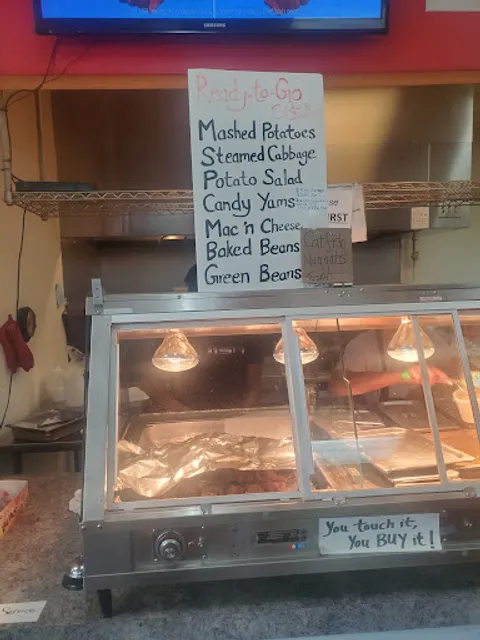 SAMSUNG
Ready-to-Go
Mashed Potatoes
Steamed Cabbage
Potato Salad
Candy Yams
Mac 'n Cheese
Baked Beans
Green Beans
IRST
Catfish
Nuggets
You touch it,
You BUY it!
Service